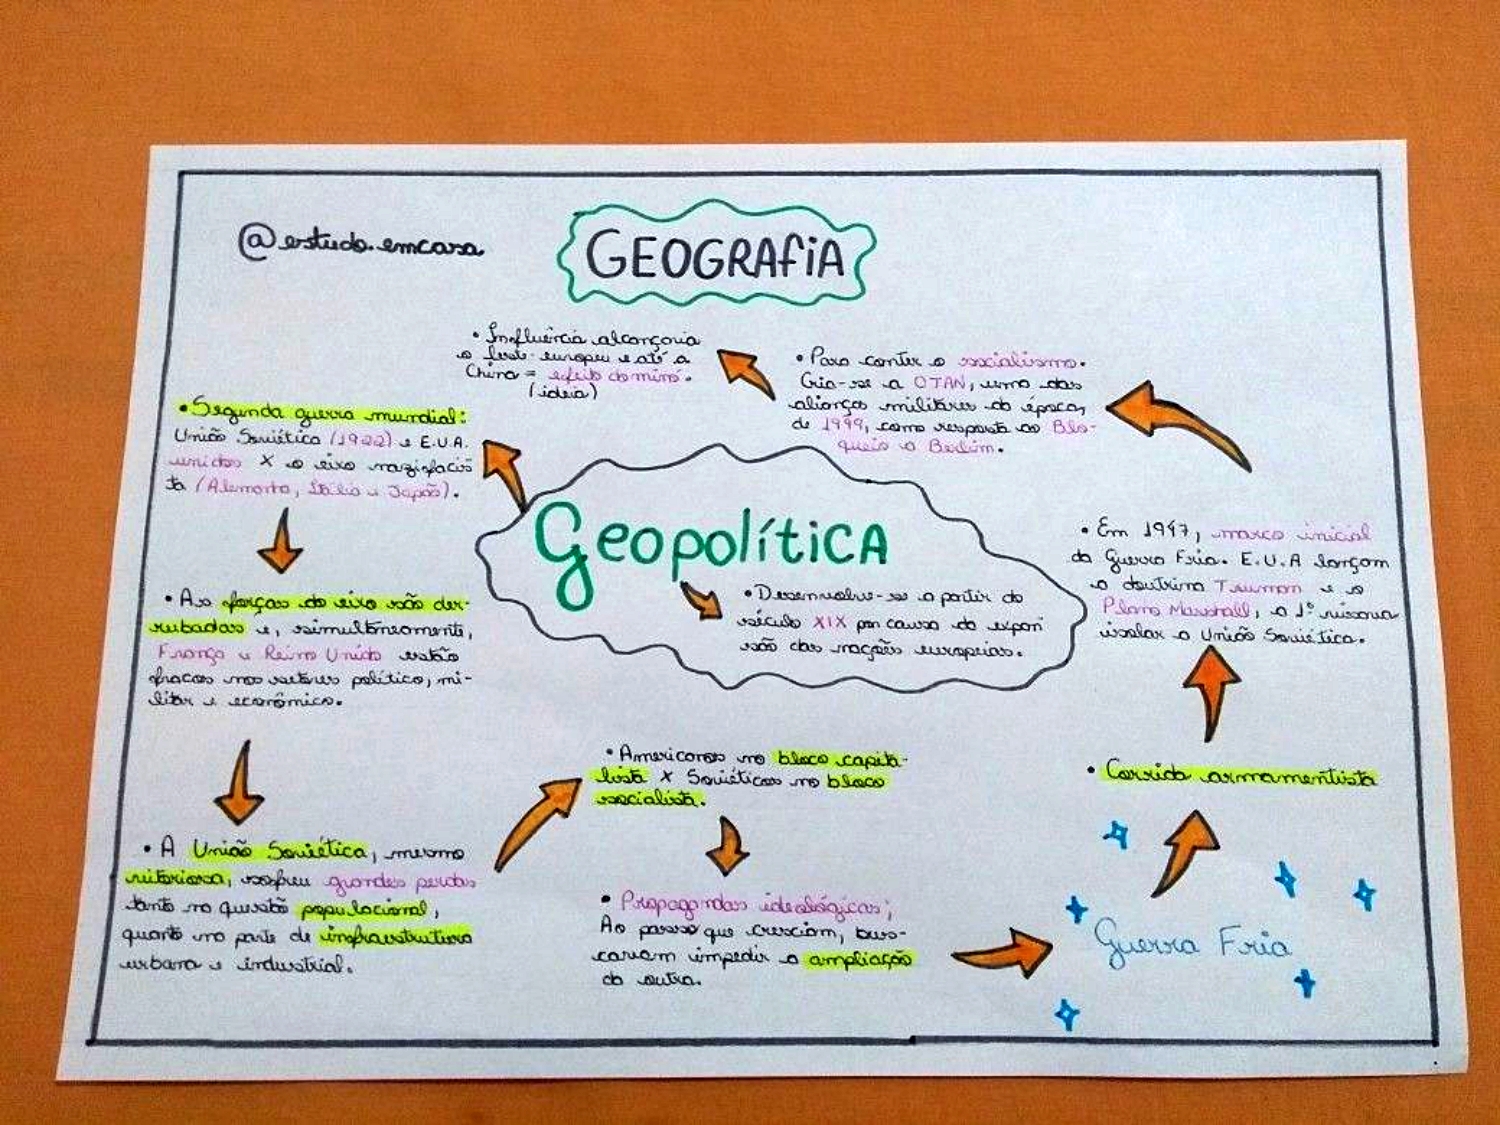 @estudo.emcasa
GEOGRAFIA
Geopolítica
• Desenvolve-se a partir do
século XIX por causa da expan
são das nações europeias.
• Segunda guerra mundial:
União Soviética (1922) e E.U.A.
unidos X o eixo nazifacis
ta (Alemanha, Itália e Japão).
• As forças do eixo são der-
rubadas e, simultaneamente,
França e Reino Unido estão
fracos nos setores político, mi-
litar e econômico.
• A União Soviética, mesmo
vitoriosa, sofreu grandes perdas
tanto na questão populacional,
quanto na parte de infraestrutura
urbana e industrial.
• Americanos no bloco capita-
lista X Soviéticos no bloco
socialista.
• Propagandas ideológicas;
Ao passo que cresciam, bus-
cavam impedir a ampliação
da outra.
Guerra Fria
• Corrida armamentista
• Em 1947, marco inicial
da Guerra Fria. E.U.A lançam
a doutrina Truman e o
Plano Marshall, a 1º visava
isolar a União Soviética.
• Para conter o socialismo.
Cria-se a OTAN, uma das
alianças militares da época,
de 1949, como resposta ao Blo-
queio a Berlim.
• Influência alcançaria
o leste europeu e até a
China = efeito dominó.
(ideia)